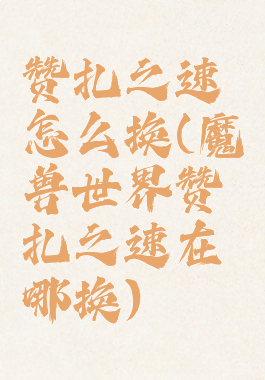 赞扎之速
怎么换(魔
兽世界赞
扎之速在
哪换)